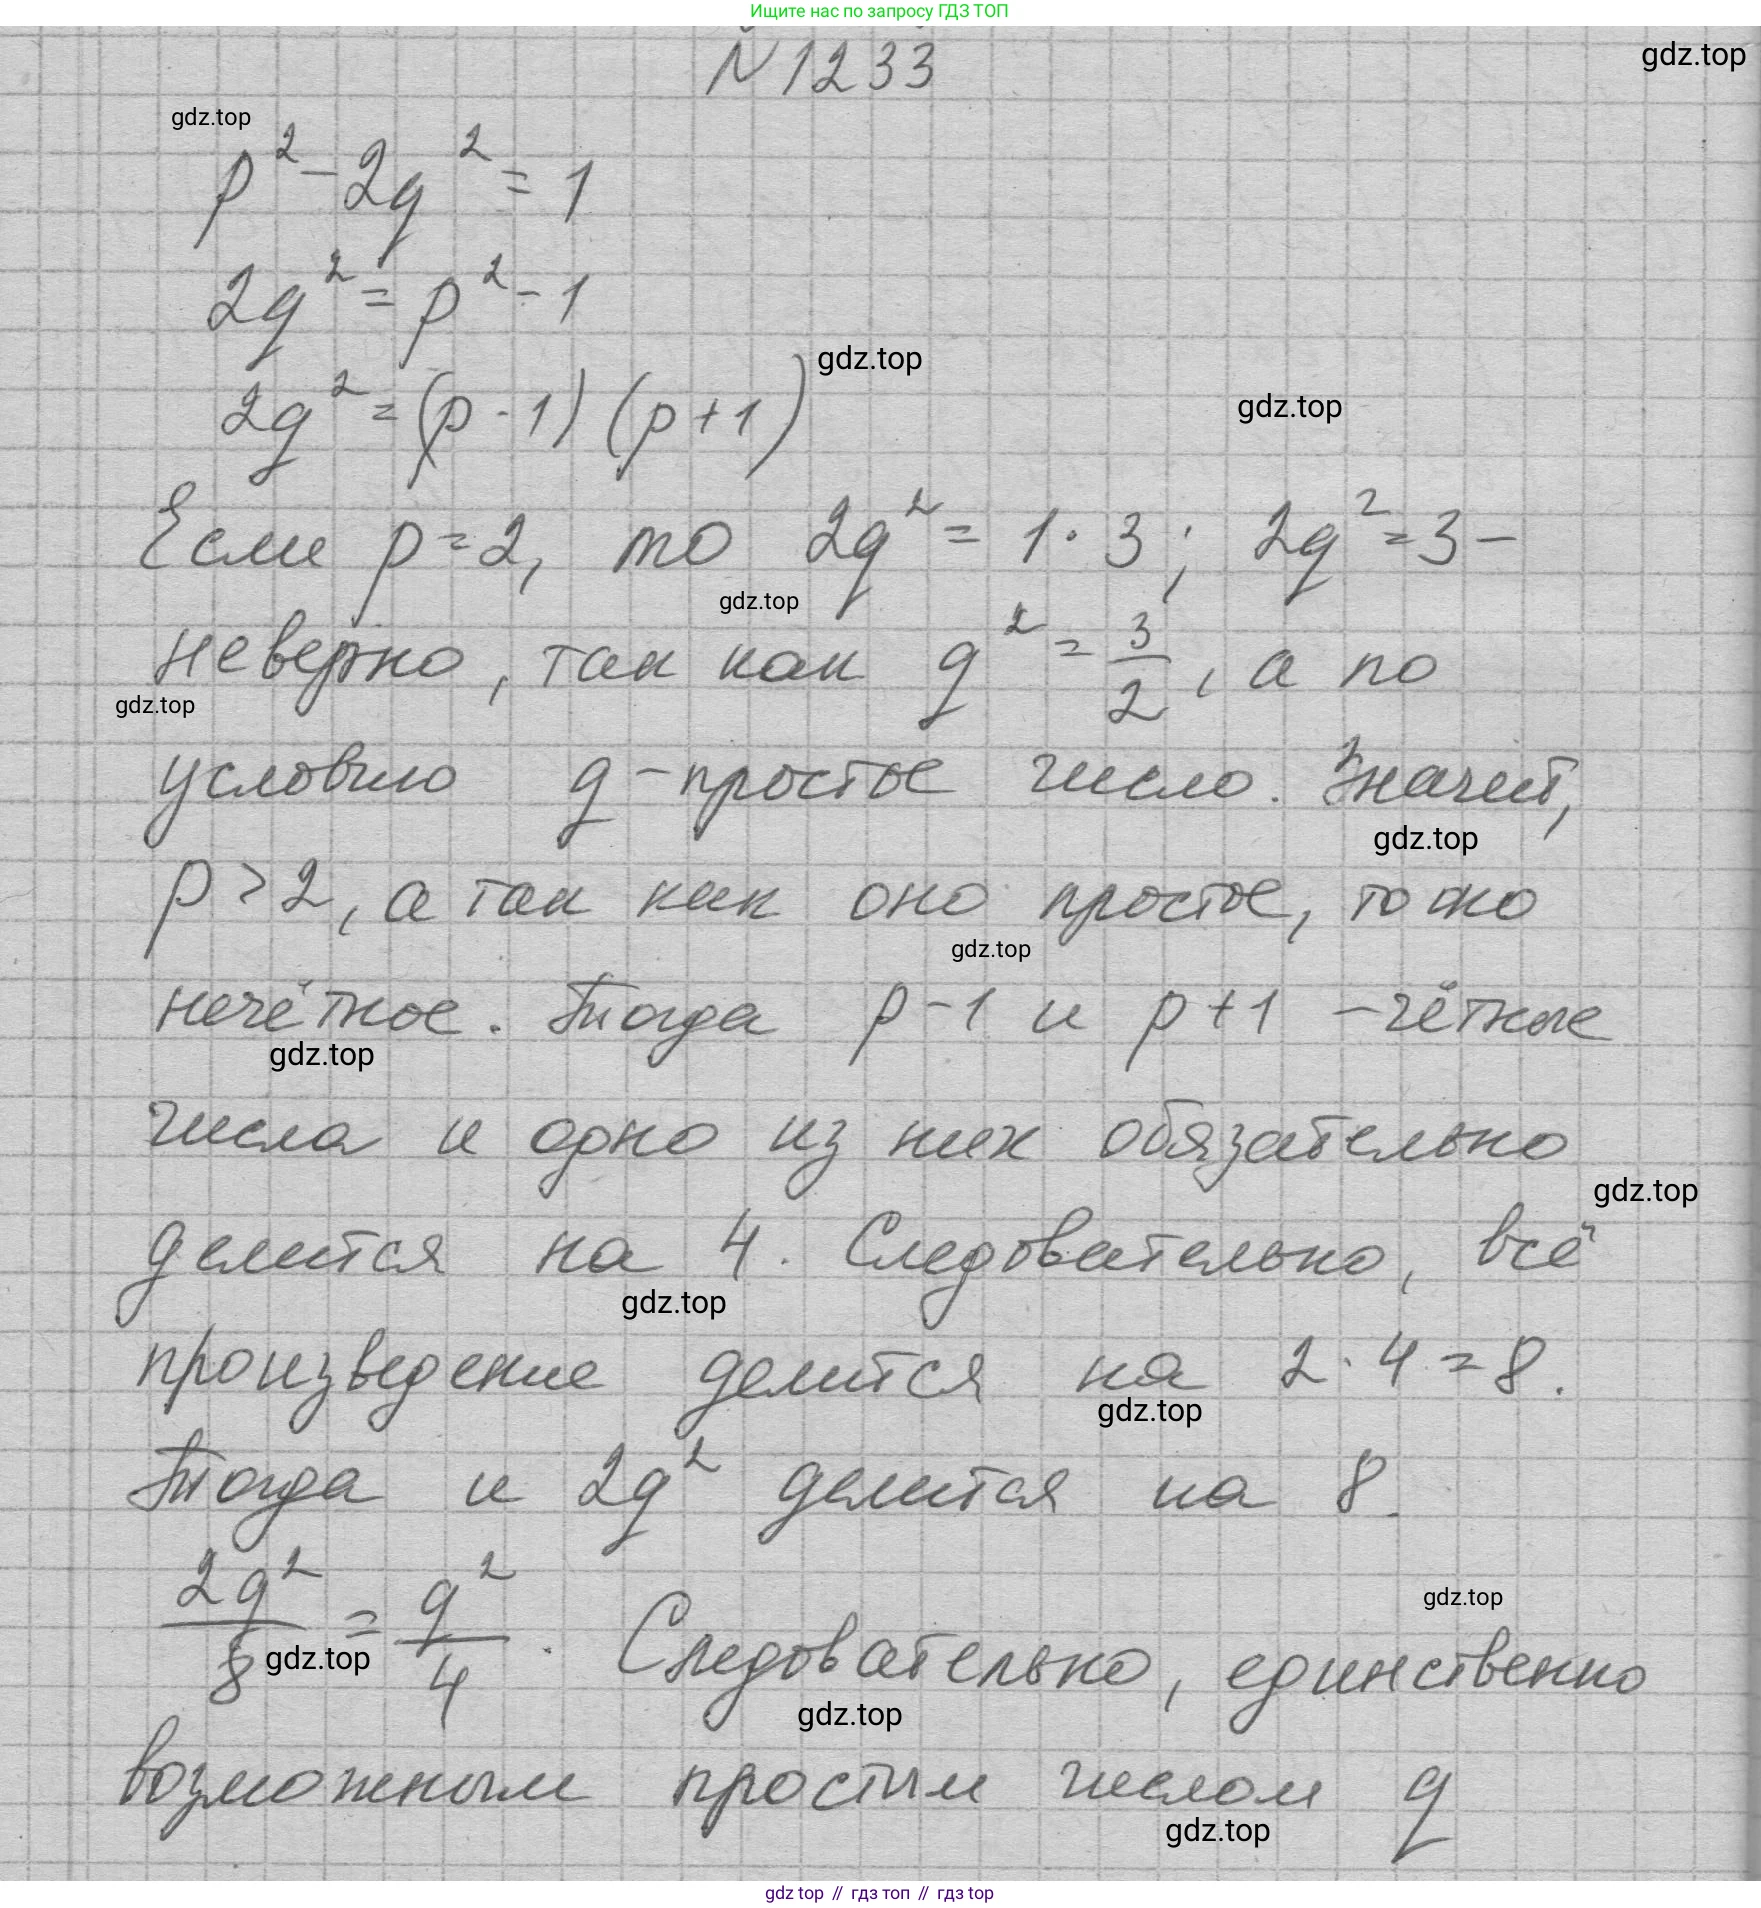 Ищите нас по запросу ГДЗ ТОП
№1233
gdz.top
gdz.top
p² - 2q² = 1
2q² = p² - 1
2q² = (p - 1)(p + 1)
gdz.top
gdz.top
Если p = 2, то 2q² = 1 · 3; 2q² = 3 -
gdz.top
неверно, так как q² = 3/2, а по
gdz.top
условию q - простое число. Значит,
gdz.top
p > 2, а так как оно простое, то оно
gdz.top
нечётное. Тогда p - 1 и p + 1 - чётные
gdz.top
числа и одно из них обязательно
gdz.top
делится на 4. Следовательно, всё
gdz.top
произведение делится на 2 · 4 = 8.
gdz.top
Тогда и 2q² делится на 8.
gdz.top
2q²/8 = q²/4. Следовательно, единственно
gdz.top
gdz.top
возможным простым числом q
gdz.top
gdz top // гдз топ // гдз top